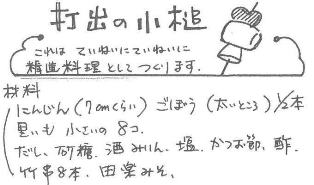 打出の小槌
これは ていねいにていねいに
精進料理としてつくります.
材料
にんじん (7cmくらい) ごぼう (太いところ) 1/2本
里いも 小さいの 8コ.
だし, 砂糖, 酒みりん, 塩, かつお節, 酢,
竹串8本. 田楽みそ,